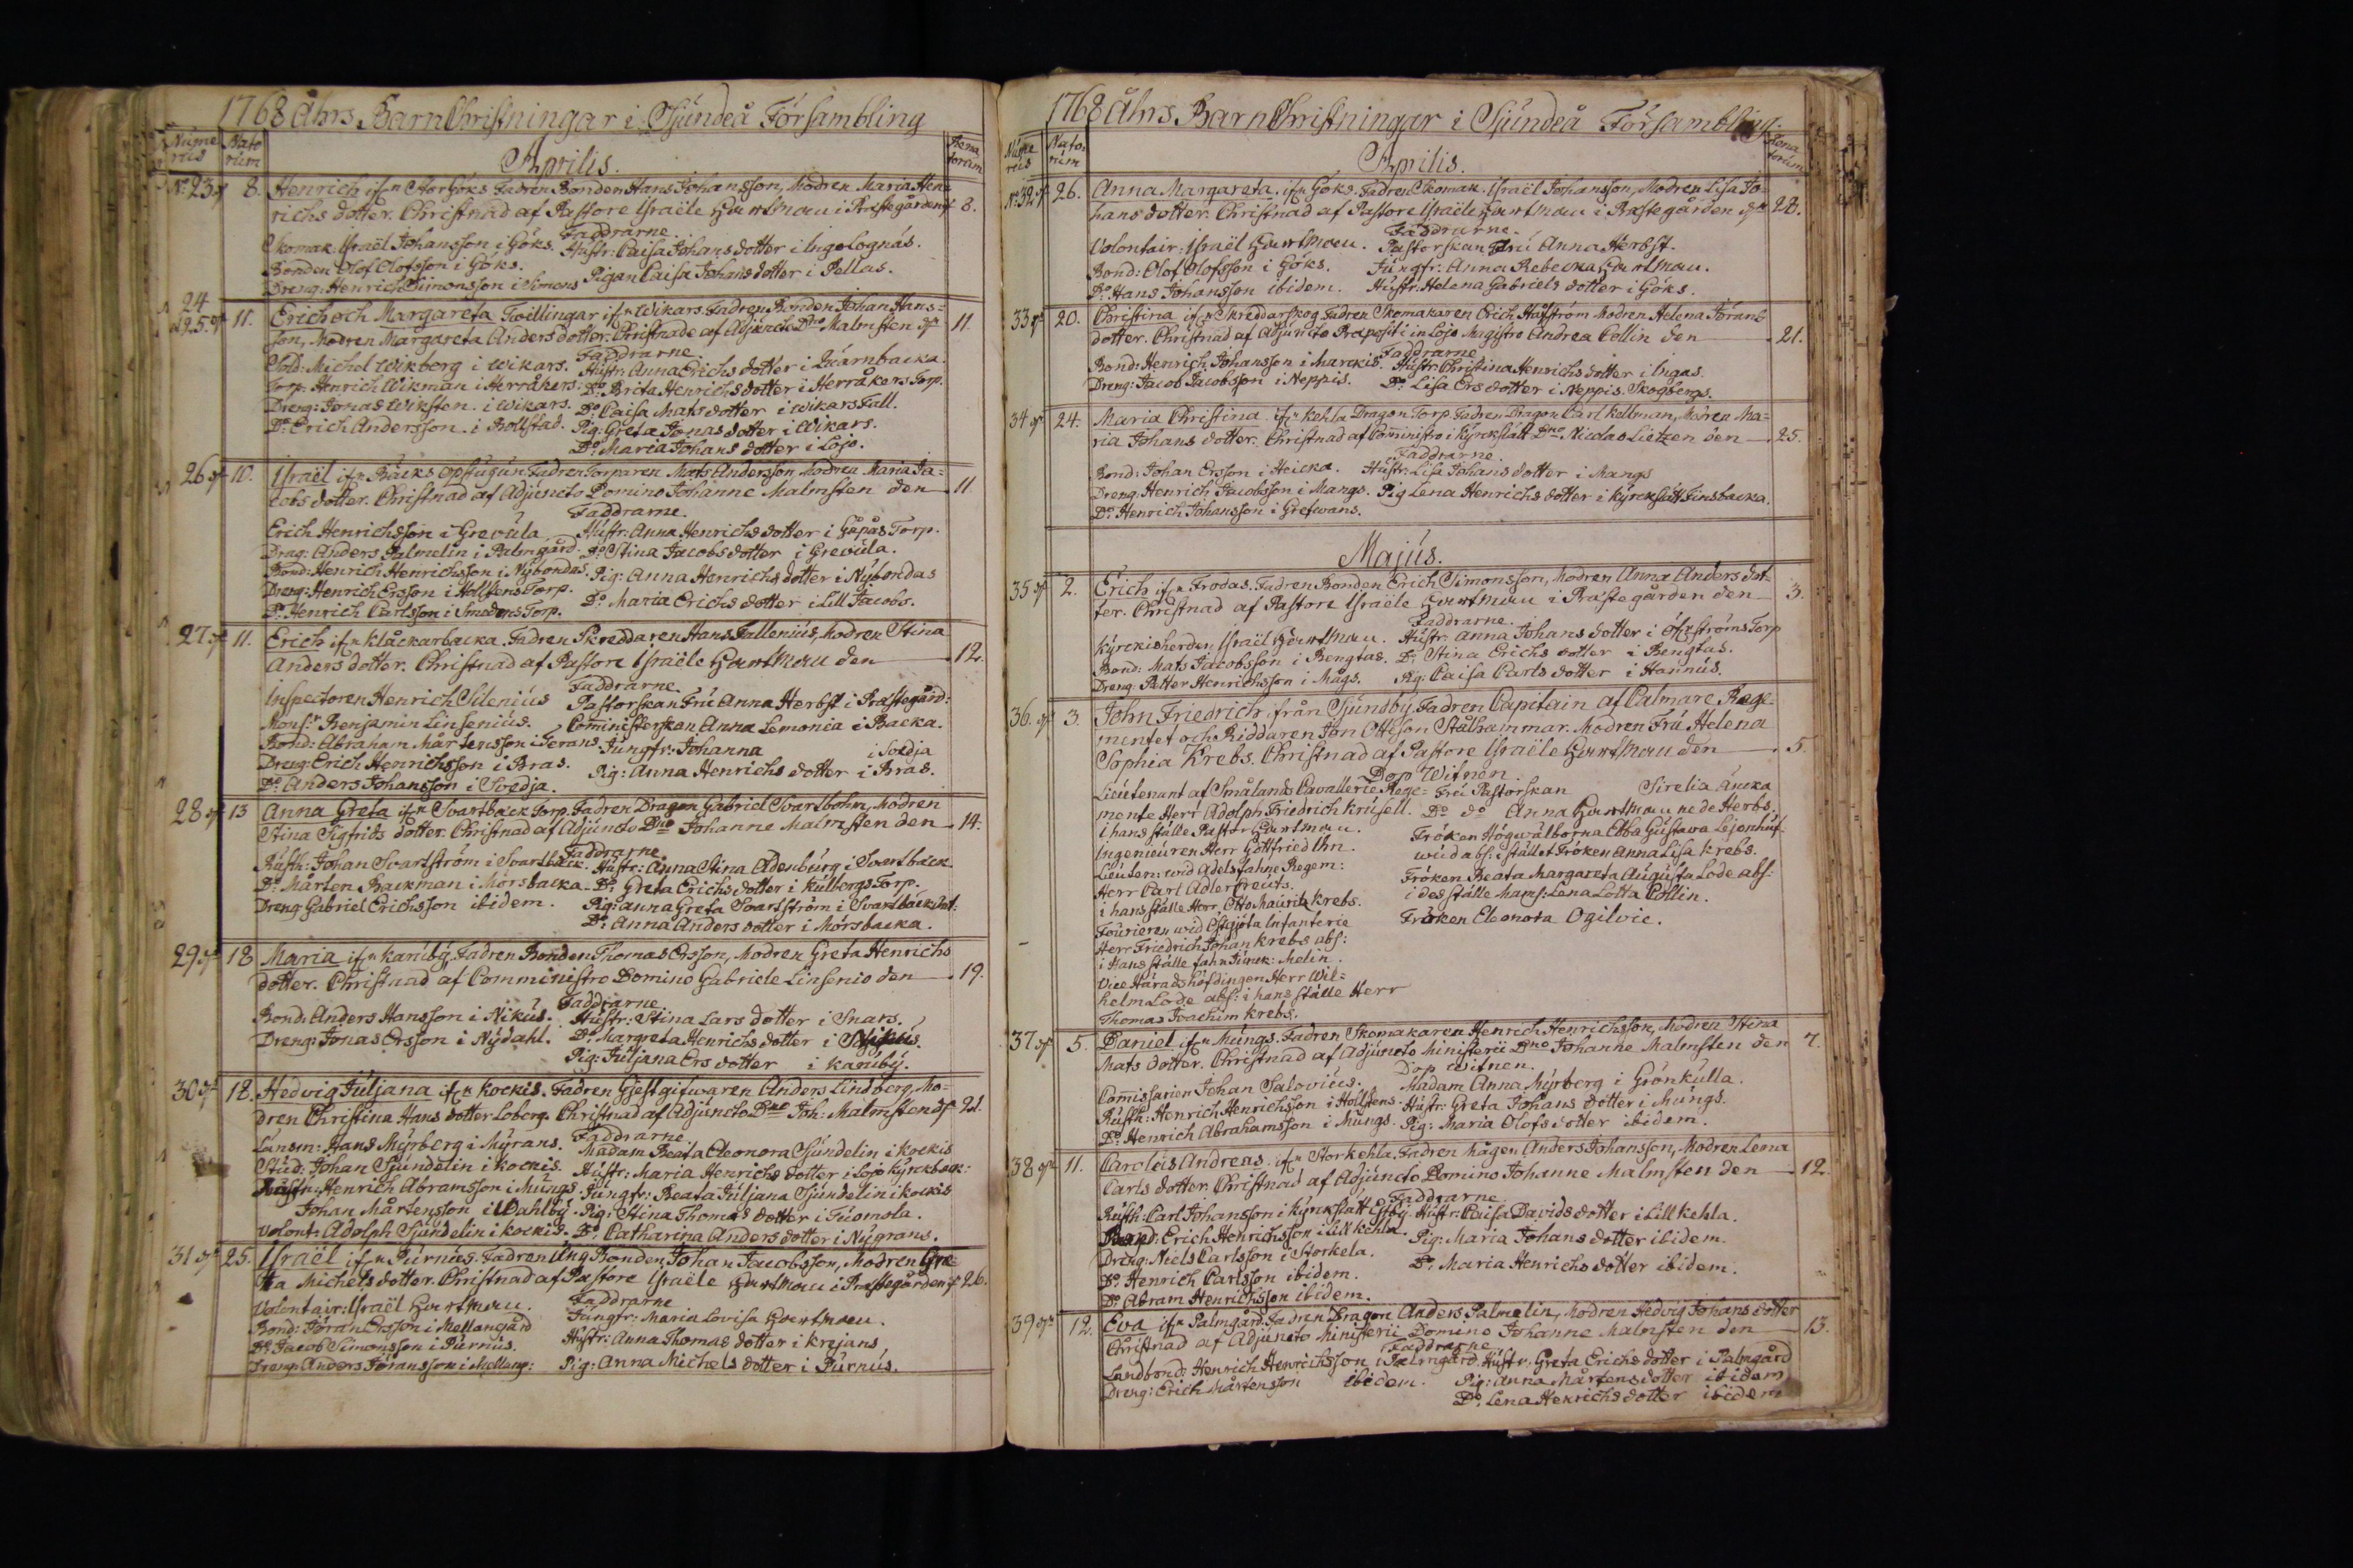 1768 åhrs Barn Christningar i Sjundeå Försambling
Nume rus
Nato rum
Aprilis.
Rena torum
No 23. 8. Henrich ifrn Storgöks Fadren Bonden Hans Johansson, Modren Maria Hen=
richs dotter. Christnad af Pastore Israële Hartman i Prästegården 8.
Faddrarne.
Skomak. Israël Johansson i Göks. Hustr: Caisa Johans dotter i Ingelognäs.
Bonden Olof Olofsson i Göks.
Dreng: Henrich Simonsson i Simons Pigan Caisa Johans dotter i Pellas.
24 et 25. 11. Erich och Margareta Twillingar ifrn Wikars. Fadren Bonden Johan Hans=
son, Modren Margareta Anders dotter. Christnade af Adjuncto Dno Malmsten 11.
Faddrarne
Sold: Michel Wikberg i Wikars. Hustr: Anna Erichs dotter i Qvarnbacka.
Torp: Henrich Wikman i Herråkers: Do Brita Henrichs dotter i Herråkers Torp.
Dreng: Jonas Wiksten. i Wikars. Do Caisa Mats dotter i Wikars Tall.
Do Erich Andersson. i Bollstad. Pig: Greta Jonas dotter i Wikars.
Do Maria Johans dotter i Lojo.
26 10. Israël ifrn Bäcks Fadren Torparen Mats Andersson, Modren Maria Ja=
cobs dotter. Christnad af Adjuncto Domino Johanne Malmsten den 11.
Faddrarne.
Erich Henrichsson i Grevula Hustr: Anna Henrichs dotter i Gåpås Torp.
Drag: Anders Palmelin i Palmgård. Do Stina Jacobs dotter i Grevula.
Bond: Henrich Henrichsson i Nybondas. Pig: Anna Henrichs dotter i Nybondas
Dreng: Henrich Ersson i Hollstens Torp.
Do Henrich Carlsson i Smedens Torp. Do Maria Erichs dotter i Lill Jacobs.
27 11. Erich ifrn Klåckarbacka. Fadren Skreddaren Hans Tallenius, Modren Stina
Anders dotter. Christnad af Pastore Israële Hartman den 12.
Faddrarne.
Inspectoren Henrich Silenius Pastorskan Fru Anna Herbst i Prästegård:
Mons:r Benjamin Linsenius. Comministerskan Anna Lemonia i Backa.
Bond: Abraham Mårtensson i Ferans Jungfr: Johanna i Svidja
Dreng: Erich Henrichsson i Bras. Pig: Anna Henrichs dotter i Bras.
Do Anders Johansson i Svidja.
28 13 Anna Greta ifrn Svartbäck Torp. Fadren Dragon Gabriel Svartbohm, Modren
Stina Sigfrids dotter. Christnad af Adjuncto Dno Johanne Malmsten den 14.
Faddrarne
Rusth: Johan Svartström i Svartbäck. Hustr: Anna Stina Adenburg i Svartbäck
Do Mårten Backman i Mörsbacka. Do Greta Erichs dotter i Kulbergs Torp.
Dreng Gabriel Erichsson ibidem. Pig: Anna Greta Svartström i Svartbäck
Do Anna Anders dotter i Mörsbacka.
29 18 Maria ifrn Karuby. Fadren Bonden Thomas Ersson, Modren Greta Henrichs
dotter. Christnad af Comministro Domino Gabriele Linsenio den 19.
Faddrarne
Bond: Anders Hansson i Nikus. Hustr: Stina Lars dotter i Snars.
Dreng: Jonas Ersson i Nydahl. Do Margreta Henrichs dotter i
Pig: Juljana Ers dotter i Karuby.
30 18. Hedvig Juljana ifrn Kockis. Fadren Gjestgifwaren Anders Lindberg, Mo=
dren Christina Hans dotter Loberg. Christnad af Adjuncto Dno Joh: Malmsten 21.
Faddrarne
Länsm: Hans Myrberg i Myrans. Madam Beata Eleonora Sjundelin i Kockis
Stud: Johan Sjundelin i Kockis. Hustr: Maria Henrichs dotter i Lojo
Rusth: Henrich Abramsson i Mungs. Jungfr: Beata Juljana Sjundelin i Kockis
Johan Mårtensson i Dahlby. Pig: Stina Thomas dotter i Tuomola.
Volont: Adolph Sjundelin i Kockis. Do Catharina Anders dotter i Nygrans.
31 25. Israël ifrn Purnus. Fadren Ung Bonden Johan Jacobsson, Modren Gre=
ta Michels dotter. Christnad af Pastore Israële Hartman i Prästegården 26.
Faddrarne
Volontair: Israël Hartman. Jungfr: Maria Lovisa Hartman.
Bond: Jöran Ersson i Mellangård
Do Jacob Simonsson i Purnus. Hustr: Anna Thomas dotter i Krejans
Dreng: Anders Jöransson i Mellang: Pig: Anna Michels dotter i Purnus.
1768 Åhrs Barn Christningar i Sjundeå Försambling.
Nume rus
Nato= rum
Aprilis.
Rena torum
No 32. 26. Anna Margareta. ifrn Göks. Fadren Skomak. Israël Johansson, Modren Lisa Jo=
hans dotter. Christnad af Pastore Israële Hartman i Prästegården 28.
Faddrarne.
Volontair: Israël Hartman. Pastorskan Fru Anna Herbst.
Bond: Olof Olofsson i Göks. Jungfr: Anna Rebecka Hartman.
Do Hans Johansson ibidem. Hustr: Helena Gabriels dotter i Göks.
33 20. Christina ifrn Skreddarskog. Fadren Skomakaren Erich Hallström Modren Helena Jörans
dotter. Christnad af Adjuncto Præpositi in Lojo Magistro Andrea Collin den 21.
Faddrarne
Bond: Henrich Johansson i Marckis. Hustr: Christina Henrichs dotter i Ingas.
Dreng: Jacob Jacobsson i Neppis. Do Lisa Ers dotter i Neppis Skogbergs.
34 24. Maria Christina ifrn Kehla Dragon Torp. Fadren Dragon Carl Kellman, Modren Ma=
ria Johans dotter. Christnad af Comministro i Kyrckslätt Dno Nicolao Lietzen den 25.
Faddrarne.
Bond: Johan Ersson i Heicka. Hustr: Lisa Johans dotter i Mangs
Dreng: Henrich Jacobsson i Mangs. Pig Lena Henrichs dotter i Kyrckslätt Finsbacka.
Do Henrich Johansson i Gretwans.
Majus.
35 2. Erich ifrn Frodas. Fadren Bonden Erich Simonsson, Modren Anna Anders dot=
ter. Christnad af Pastore Israële Hartman i Prästegården den 3.
Faddrarne.
Kyrckioherden Israël Hartman. Hustr: Anna Johans dotter i Torp
Bond: Mats Jacobsson i Bengtas. Do Stina Erichs dotter i Bengtas.
Dreng: Petter Henrichsson i Mågs. Pig: Caisa Carls dotter i Hannus.
36. 3. John Friedrich från Sjundby. Fadren Capitain af Calmare Rege=
mentet och Riddaren Jon Ottoson Stålhammar. Modren Fru Helena
Sophia Krebs. Christnad af Pastore Israële Hartman den 5.
Dop Witnen.
Lieutenant af Smålands Cavallerie Rege= Fru Pastorskan Sirelia Äncka
mente Herr Adolph Friedrich Krusell. Do do Anna Hartman nede Herbs.
i hans ställe Pastor Hartman. Fröken Högwälborna Ebba Gustava Lejonhuf=
Ingenieuren Herr Gottfried Ihn. wud abs: i stället Fröken Anna Lisa Krebs.
Lieuten: wid Adelsfahne Regem: Fröken Beata Margareta Augusta Lode abs:
Herr Carl Adlercreuts. i des ställe Mams: Lena Lotta Collin.
i hans ställe Herr Otto Mauritz Krebs. Fröken Eleonora Ogilvie.
Fourieren wid Östgjöta Infanterie
Herr Friedrich Johan Krebs abs:
i Hans ställe fahn Junck: Melin.
Vice Häradshöfdingen Herr Wil=
helm Lode abs: i hans ställe Herr
Thomas Joachim Krebs.
37 5. Daniel ifrn Mungs. Fadren Skomakaren Henrich Henrichsson, Modren Stina
Mats dotter. Christnad af Adjuncto Ministerii Dno Johanne Malmsten den 7.
Dop Witnen.
Commissarien Johan Salovius. Madam Anna Myrberg i Grönkulla.
Rusth: Henrich Henrichsson i Hollstens. Hustr: Greta Johans dotter i Mungs.
Do Henrich Abrahamsson i Mungs. Pig: Maria Olofs dotter ibidem.
38 11. Carolus Andreas. ifrn Storkehla. Fadren Mågen Anders Johansson, Modren Lena
Carls dotter. Christnad af Adjuncto Domino Johanne Malmsten den 12.
Faddrarne
Rusth: Carl Johansson i Kyrckslätt Gisby. Hustr: Caisa Davids dotter i Lill kehla.
Bond: Erich Henrichsson i Lill kehla. Pig: Maria Johans dotter ibidem.
Dreng: Niels Carlsson i Storkela.
Do Henrich Carlsson ibidem. Do Maria Henrichs dotter ibidem.
Do Abram Henrichsson ibidem.
39 12. Eva ifrn Palmgård. Fadren Dragon Anders Palmelin, Modren Hedvig Johans dotter
Christnad af Adjuncto Ministerii Domino Johanne Malmsten den 13.
Faddrarne
Landbond: Henrich Henrichsson i Palmgård. Hustr: Greta Erichs dotter i Palmgård
Dreng: Erich Mårtensson ibidem. Pig: Anna Mårtens dotter ibidem
Do Lena Henrichs dotter ibidem